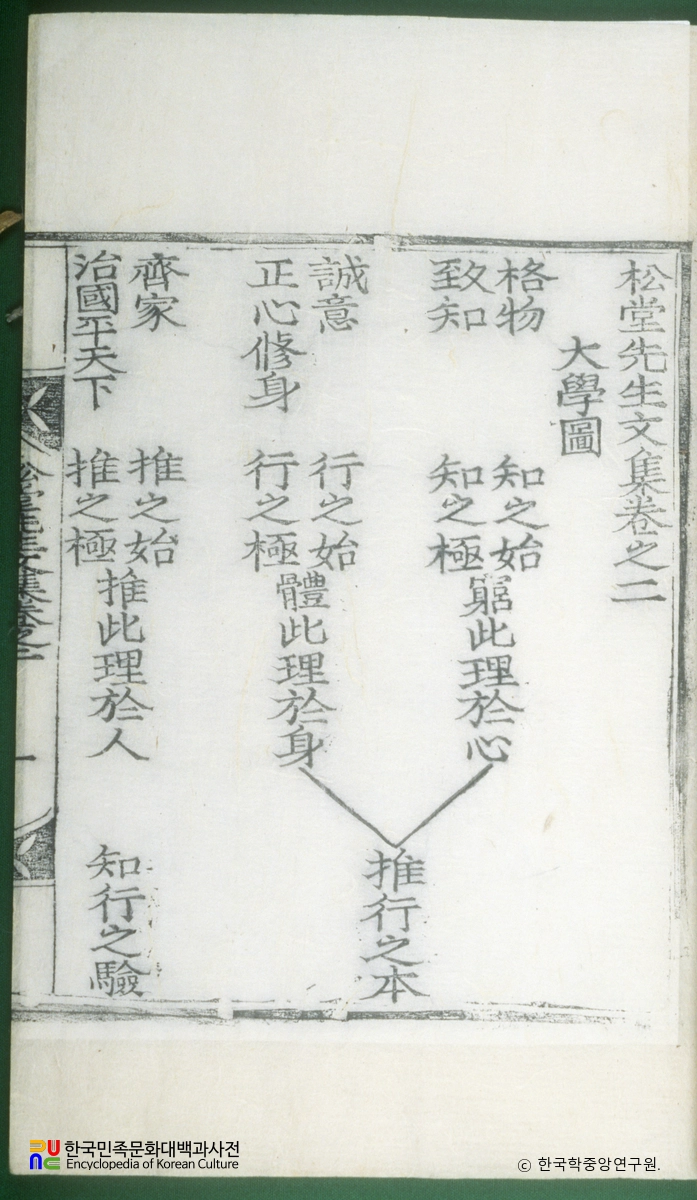 松堂先生文集卷之二
大學圖
格物 知之始
致知 知之極
窮此理於心
誠意 行之始
正心修身 行之極
體此理於身
推行之本
齊家 推之始
治國平天下 推之極
推此理於人
知行之驗
松堂先生文集卷之二
一
한국민족문화대백과사전
Encyclopedia of Korean Culture
© 한국학중앙연구원.